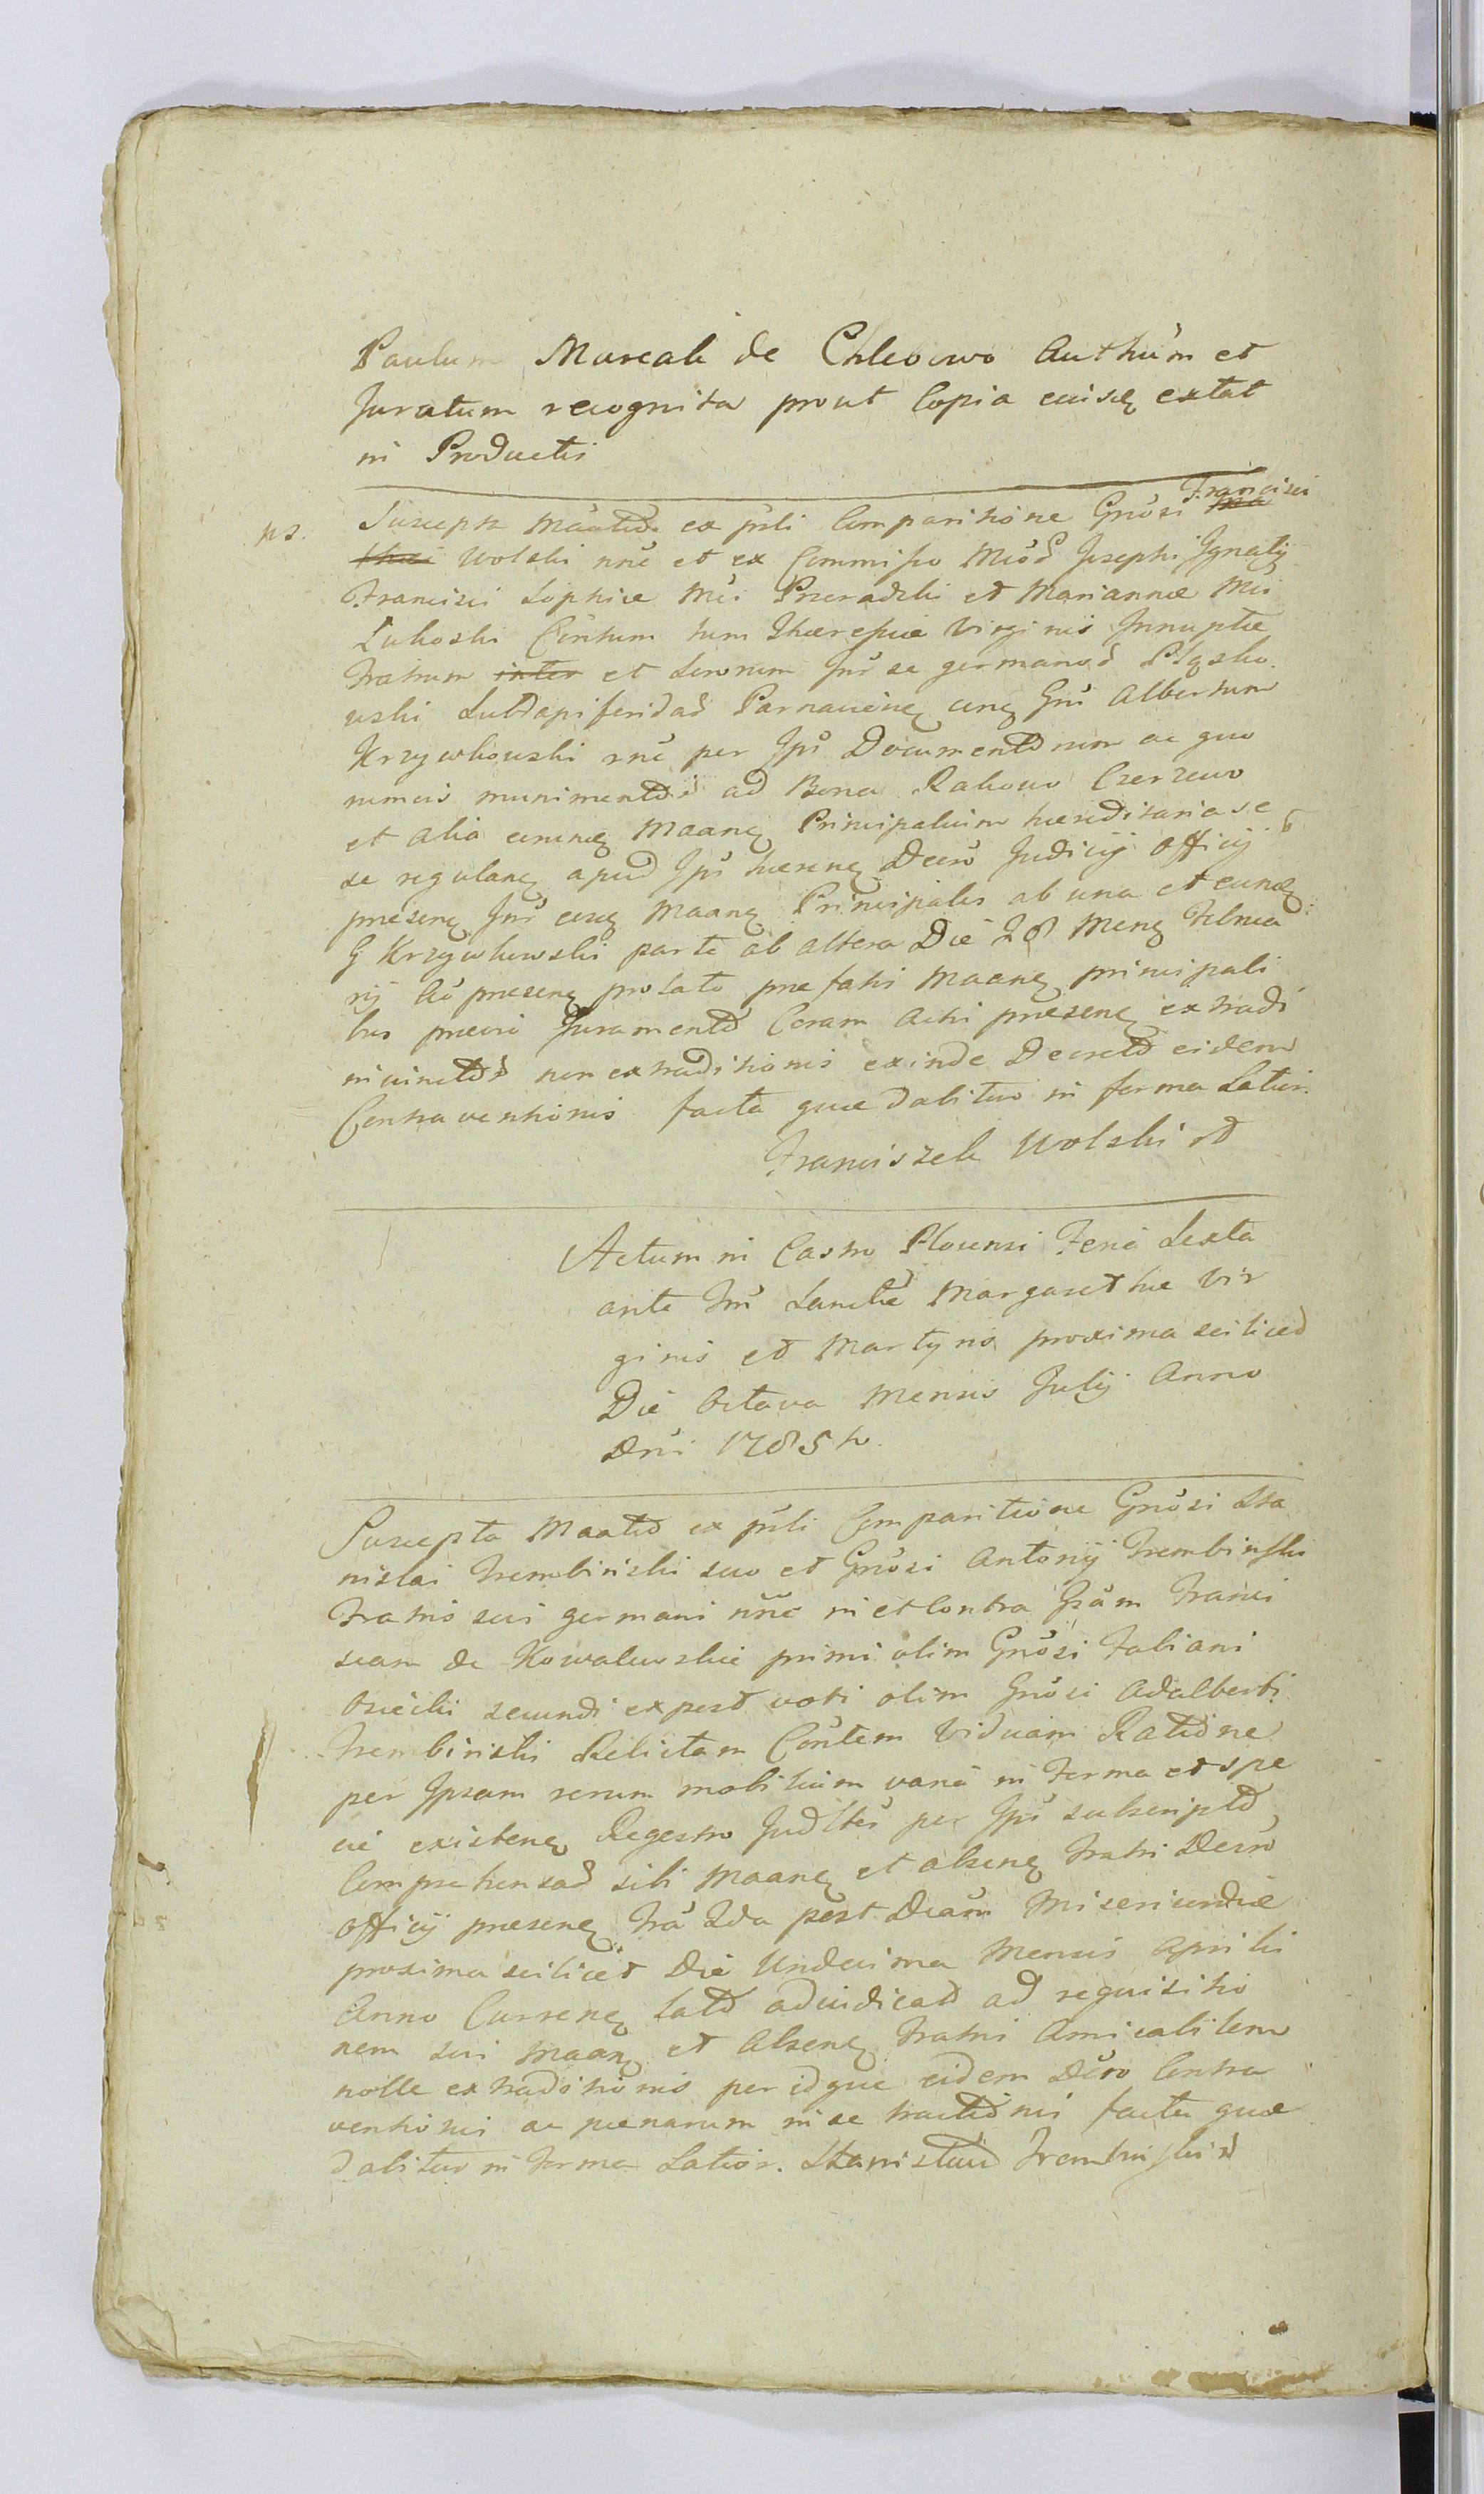 Paulum Marcak de Chleowo Authũm et
Juratum recognita prout Copia eiusq extat
in Productis
Francisci
ns. Suscepta Maatio ex p̃sli Comparitione Gnosi ma
thai Wolski nñe et ex Commisso Josephi Ignatij
Francisci Sophiae Mci Przeradzki et Mariannae Mci
Lukoski Cöntum tum Theresiae Virginis Innuptae
Fratrum inter et Sororum Inr se germanoδ
uski Subdapiferidaδ Parnavienę unę Gni Albertum
Krzywkowski nñe per Ipŭ Documentδ num ac quo
rumvis munimentδ ad Bona Rakowo Czerzewo
et alia eorumq Maanę Principalium haereditaria se
se regulanę apud Ipŭ haerenę Decro Judicij Officij
praesenę Inr eosę Maanę Principales ab una et eunδ
G Krzywkowski parte ab altera Die 28 Menę Februa
rij Aö praesenę prolato praefatis Maanę principali
bus praevio Juramentδ Coram Actis praesenę extradi
non extraditionis exinde Decretδ eidem
Contraventionis facta quae dabitur in forma Latior.
Franciszek Wolski
Actum in Castro Plocensi Feria Sexta
ante Fm̃ Sanctae Margarethae Vir
ginis et Martyris proxima scilicet
Die Octava Mensis Julij Anno
Dnĩ 1785to.
Suscepta Maatio ex p̃sli Comparitione Gnosi Sta
nislai Trembinski suo et Gnosi Antonij Trembinski
Fratris sui germani nñe in et Contra Gsam Franci
scam de Kowalewskie primi olim Gnosi Fabiani
Osiecki secundi expost voti olim Gnosi Adalberti
Trembinski Relictam Cöntem Viduam Ratiõne
per Ipsam rerum mobilium variã in Forma et spe
cie existenę Regestro per Ipŭ subscriptδ
Comprehensaδ sibi Maanę et absenę Fratri Decro
Officij praesenę Fra 2da post Dcam Misericordiae
proxima scilicet Die Undecima Mensis Aprilis
Anno Currenę latδ adiudicatδ ad requisitio
nem sui Maanę et Absenę Fratris Amicabilem
nolle extraditionis per idque eidem Decro Contra
ventionis ac paenarum in se tractiõnis facta quae
dabitur in Forma Latior. Stanislaus Trembinski